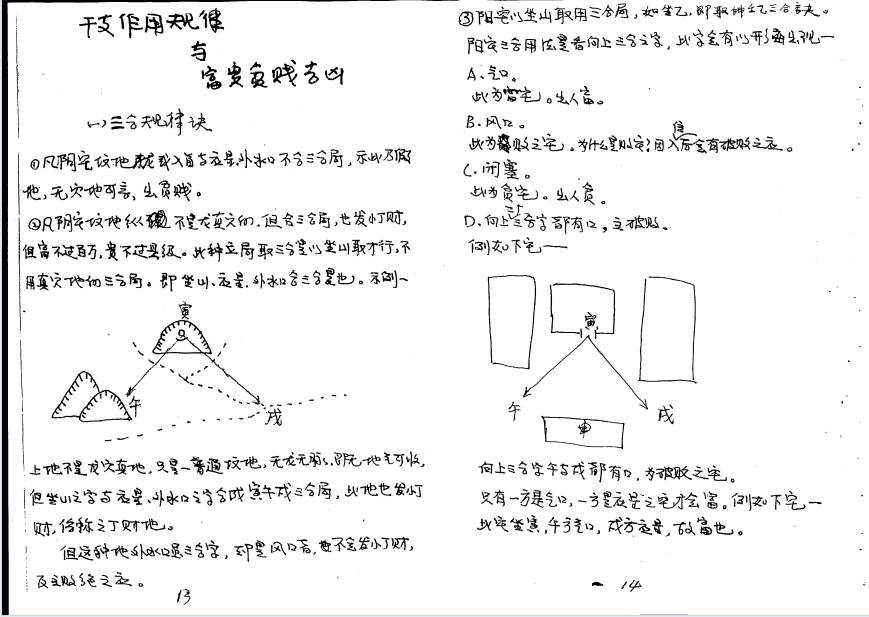 干支作用规律
与
富贵贫贱吉凶
(一)三合规律诀
①凡阴宅坟地龙或入首与应星外水口不合三合局，示此乃假
地，无穴地可言，出贫贱。
②凡阴宅坟地纵不是龙真穴的，但合三合局，也发小丁财，
但富不过百万，贵不过县级。此种立局取三合是以坐山取才行，不
用真穴地的三合局。即坐山、应星、外水口合三合是也。示例一
寅
午
戌
上地不是龙穴真地，只是一普通坟地，无龙无脉，即无地气可收，
但坐山之字与应星、外水口之字合成寅午戌三合局，此地也发小丁
财，俗称之丁财地。
但这种地外水口虽三合字，却是风口者，也不会发小丁财，
反主败绝之应。
13
③阳宅以坐山取用三合局，如坐乙，即取三合言诀。
阳宅三合用法是看向上三合之字，此字会有以形出现一
A、气口。
此为富宅。出人富。
B、风口。
此为败之宅。为什么是败宅？因入住后会有破败之应。
C、闭塞。
此为贫宅。出人贫。
D、向上三合二字都有口，主破败。
例如下宅——
寅
午
戌
申
向上三合字午与戌都有口，为破败之宅。
只有一方是气口，一方是应星之宅才会富。例如下宅一
此宅坐寅，午方气口，戌方应星，故富也。
14